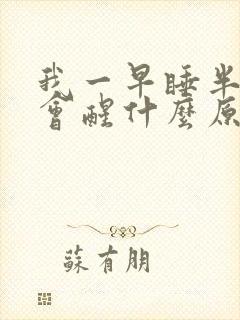 我一早睡半
會醒什麼原
蘇有朋